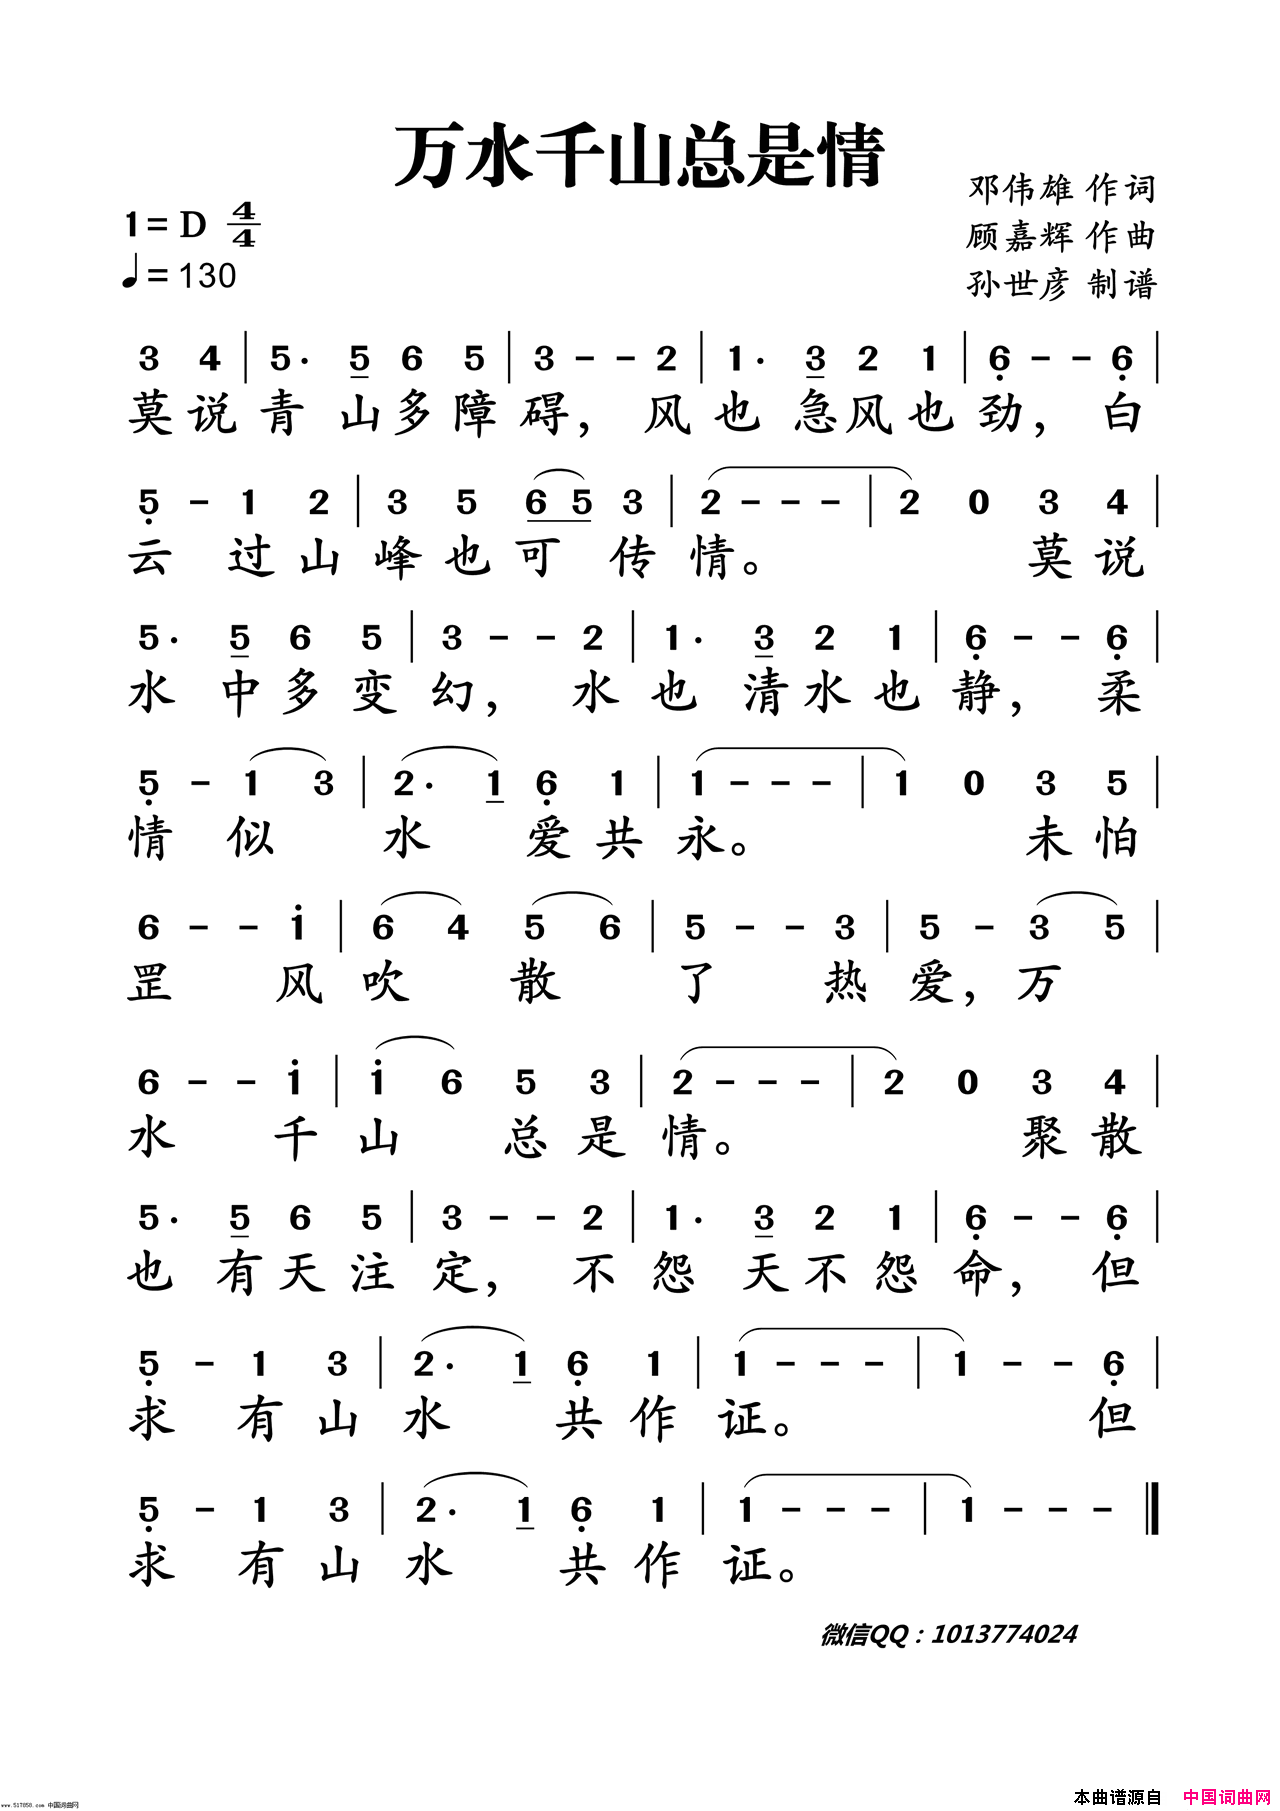 万水千山总是情
邓伟雄 作词
1=D 4/4
顾嘉辉 作曲
♩=130
孙世彦 制谱
3 4 | 5· 5 6 5 | 3 - - 2 | 1· 3 2 1 | 6 - - 6 |
莫说青山多障碍，风也急风也劲，白
5 - 1 2 | 3 5 6 5 3 | 2 - - - | 2 0 3 4 |
云过山峰也可传情。莫说
5· 5 6 5 | 3 - - 2 | 1· 3 2 1 | 6 - - 6 |
水中多变幻，水也清水也静，柔
5 - 1 3 | 2· 1 6 1 | 1 - - - | 1 0 3 5 |
情似水爱共永。未怕
6 - - 1 | 6 4 5 6 | 5 - - 3 | 5 - 3 5 |
罡风吹散了热爱，万
6 - - 1 | 1 6 5 3 | 2 - - - | 2 0 3 4 |
水千山总是情。聚散
5· 5 6 5 | 3 - - 2 | 1· 3 2 1 | 6 - - 6 |
也有天注定，不怨天不怨命，但
5 - 1 3 | 2· 1 6 1 | 1 - - - | 1 - - 6 |
求有山水共作证。但
5 - 1 3 | 2· 1 6 1 | 1 - - - | 1 - - - ‖
求有山水共作证。
微信QQ：1013774024
本曲谱源自 中国词曲网
www.517858.com 中国词曲网